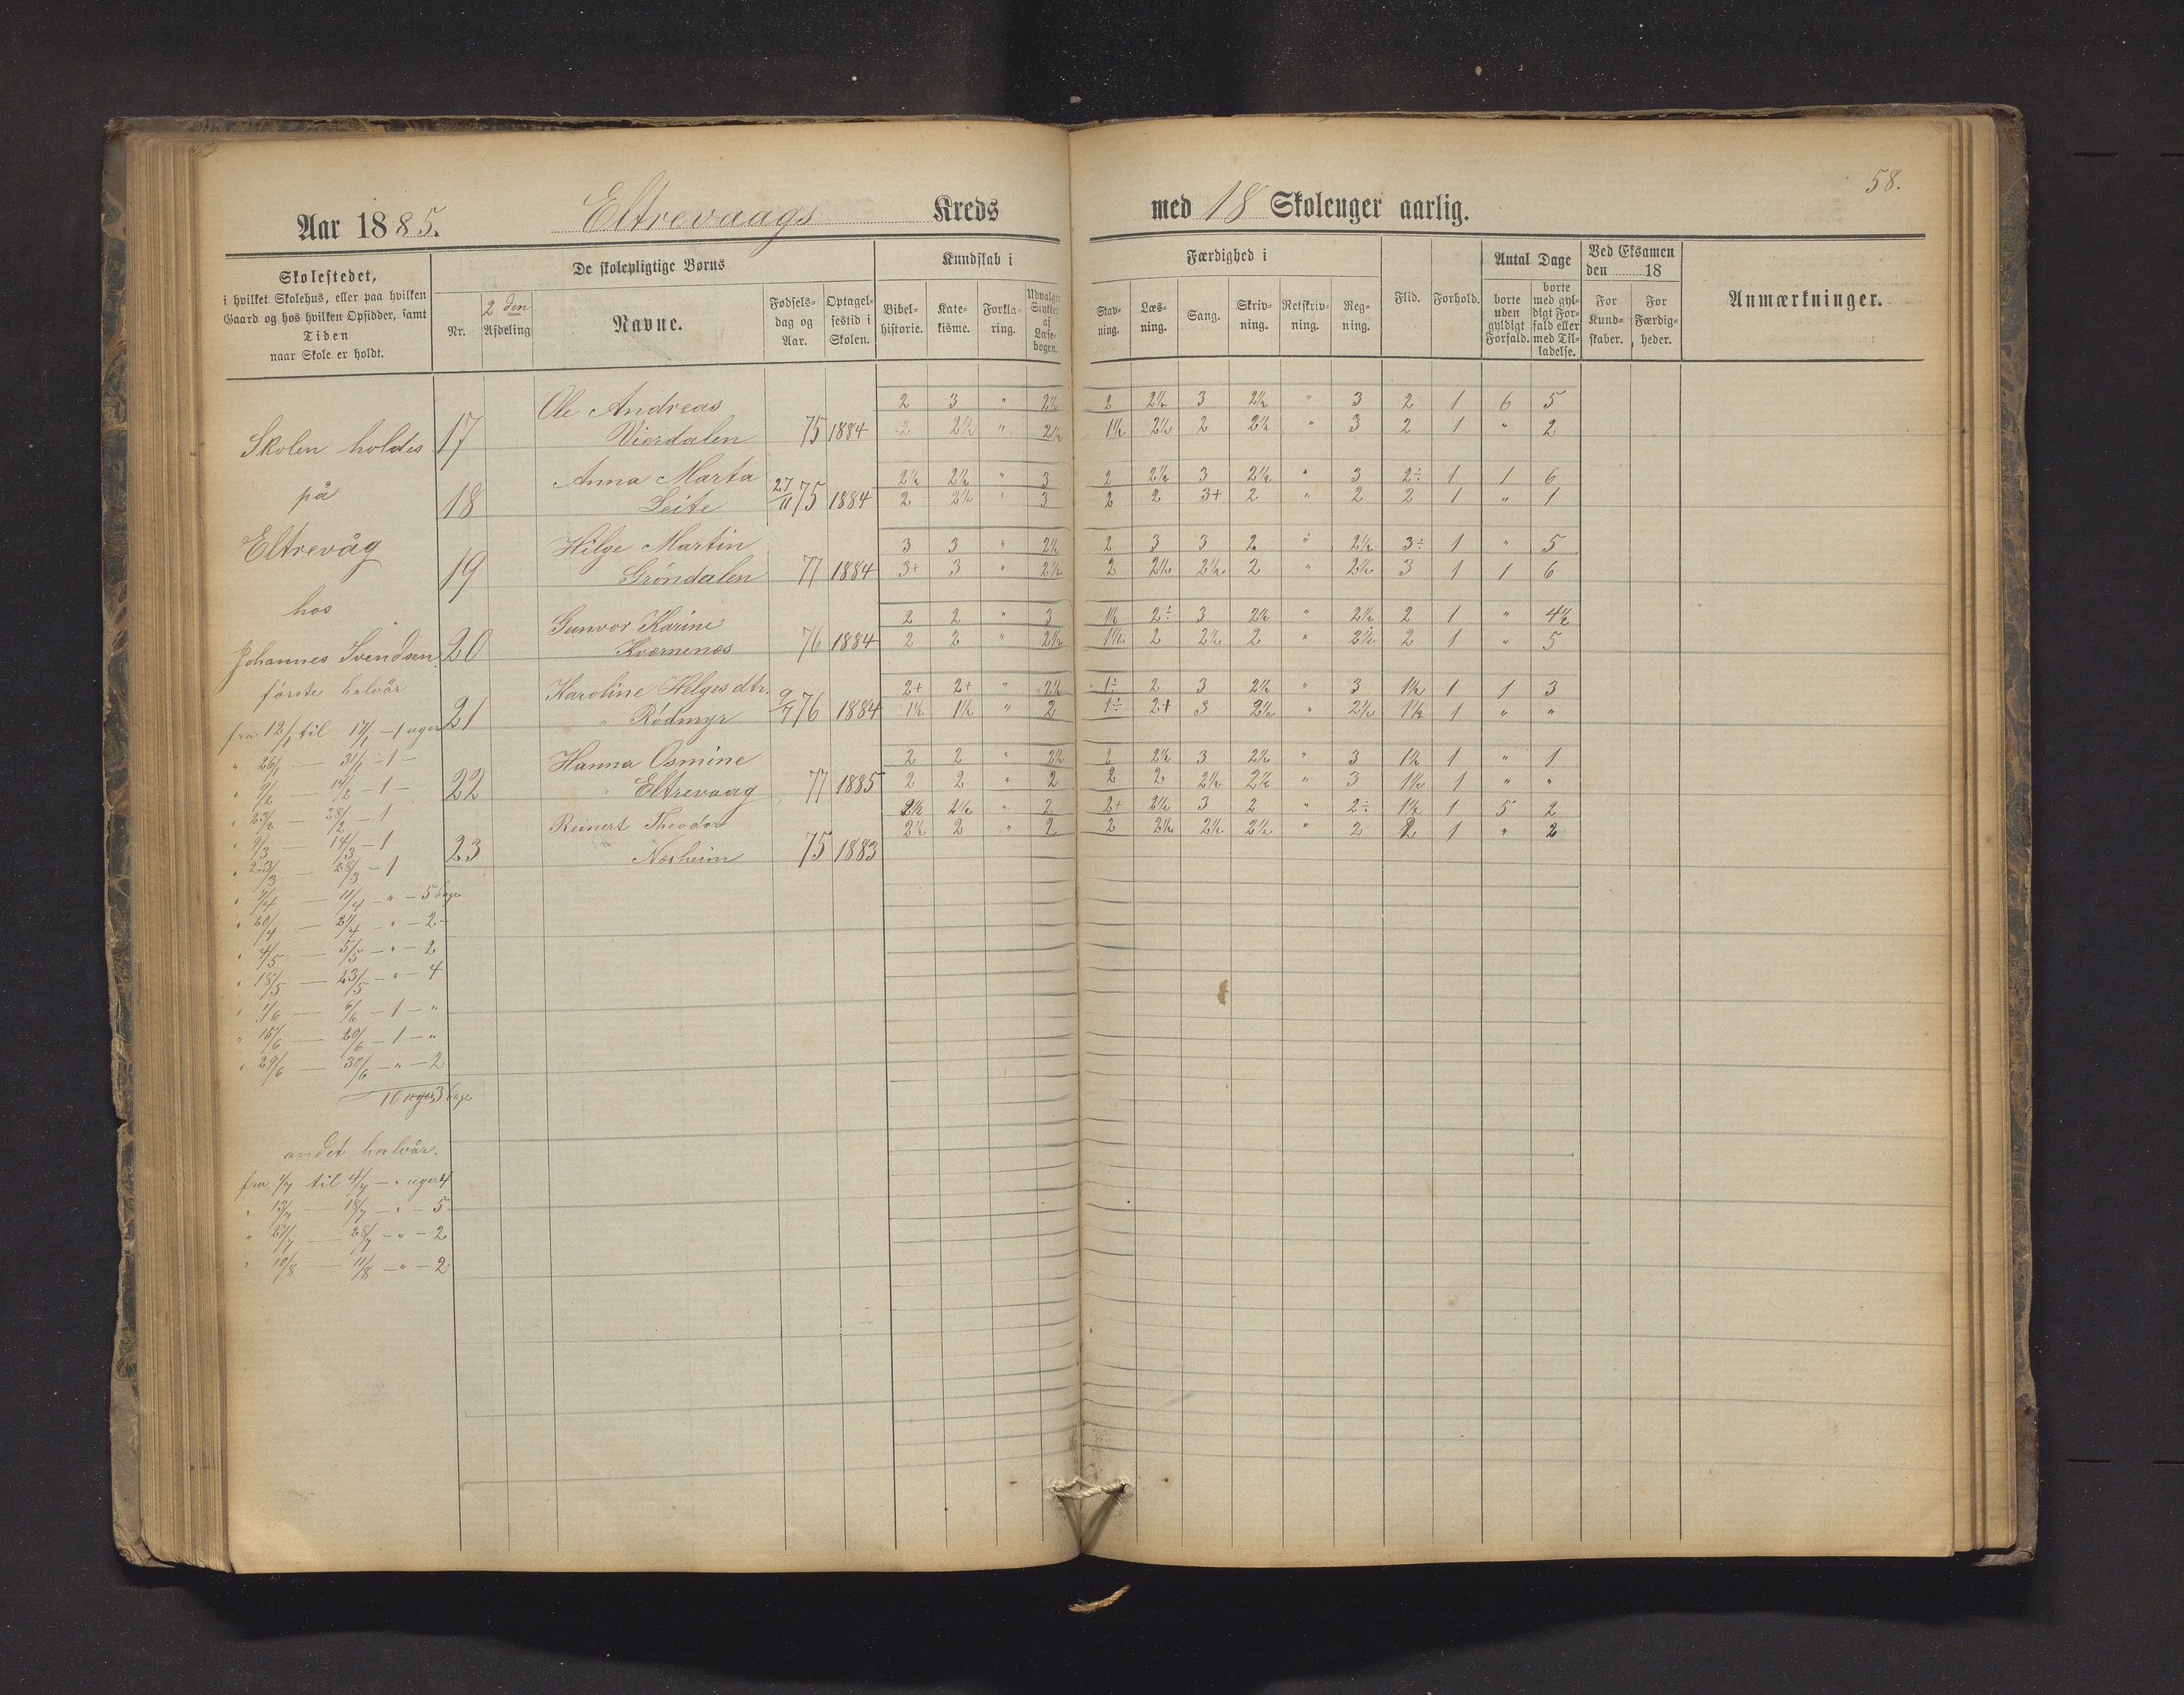 58.
Aar 1885. Eltrevaags Kreds med 18 Skoleuger aarlig.
Skolestedet, i hvilket Skolehus, eller paa hvilken Gaard og hos hvilken Opsidder, samt Tiden naar Skole er holdt.
De skolepligtige Børns
Nr. 2den Afdeling Navne. Fødselsdag og Aar. Optagelsestid i Skolen.
Kundskab i
Bibelhistorie. Katekisme. Forklaring. Udvalgte Stykker af Læsebogen.
Færdighed i
Stavning. Læsning. Sang. Skrivning. Retskrivning. Regning.
Flid. Forhold.
Antal Dage
borte uden gyldigt Forfald. borte med gyldigt Forfald eller med Tilladelse.
Ved Eksamen den 18
For Kundskaber. For Færdigheder.
Anmærkninger.
Skolen holdes
på
Eltrevåg
hos
Johannes Svendsen
første halvår
fra 12/1 til 17/1 - 1 uger
" 26/1 — 31/1 - 1 -
" 9/2 — 14/2 - 1 -
" 23/2 — 28/2 - 1
" 9/3 — 14/3 - 1
" 23/3 — 28/3 - 1
" 7/4 — 11/4 - " - 5 dage
" 20/4 — 21/4 - " - 2 -
" 4/5 — 5/5 - " - 2
" 18/5 — 23/5 - " - 4
" 1/6 — 6/6 - 1 - "
" 15/6 — 20/6 - 1 - "
" 29/6 — 30/6 - " - 2
10 uger 3 dage
andet halvår.
fra 1/7 til 4/7 - " uger 4
" 13/7 — 18/7 - " - 5
" 27/7 — 28/7 - " - 2
" 10/8 — 11/8 - " - 2
17 Ole Andreas Vierdalen 75 1884
2 3 " 2½ 2 2½ 3 2½ " 3 2 1 6 5
2 2½ " 2½ 1½ 2½ 2 2½ " 3 2 1 " 2
18 Anna Marta Leite 27/11 75 1884
2½ 2½ " 3 2 2½ 3 2½ " 3 2÷ 1 1 6
2 2½ " 3 2 2 3+ 2 " 2 2 1 " 1
19 Hilge Martin Grøndalen 77 1884
3 3 " 2½ 2 3 3 2 " 2½ 3÷ 1 " 5
3+ 3 " 2½ 2 2½ 2½ 2 " 2½ 3 1 1 6
20 Gunvor Karine Kvernenes 76 1884
2 2 " 3 1½ 2÷ 3 2½ " 2½ 2 1 " 4½
2 2 " 2½ 1½ 2 2½ 2 " 2½ 2 1 " 5
21 Karoline Helgesdtr. " Rødmyr 9/7 76 1884
2+ 2+ " 2½ 1÷ 2 3 2½ " 3 1½ 1 1 3
1½ 1½ " 2 1÷ 2+ 3 2½ " 2½ 1½ 1 " "
22 Hanna Osmine " Eltrevaag 77 1885
2 2 " 2½ 2 2½ 3 2½ " 3 1½ 1 " 1
2 2 " 2 2 2 2½ 2½ " 3 1½ 1 " "
23 Reinert Theodor Nesheim 75 1883
2½ 2½ " 2 2+ 2½ 3 2 " 2÷ 1½ 1 5 2
2½ 2 " 2 2 2½ 2½ 2½ " 2 2 1 " 2